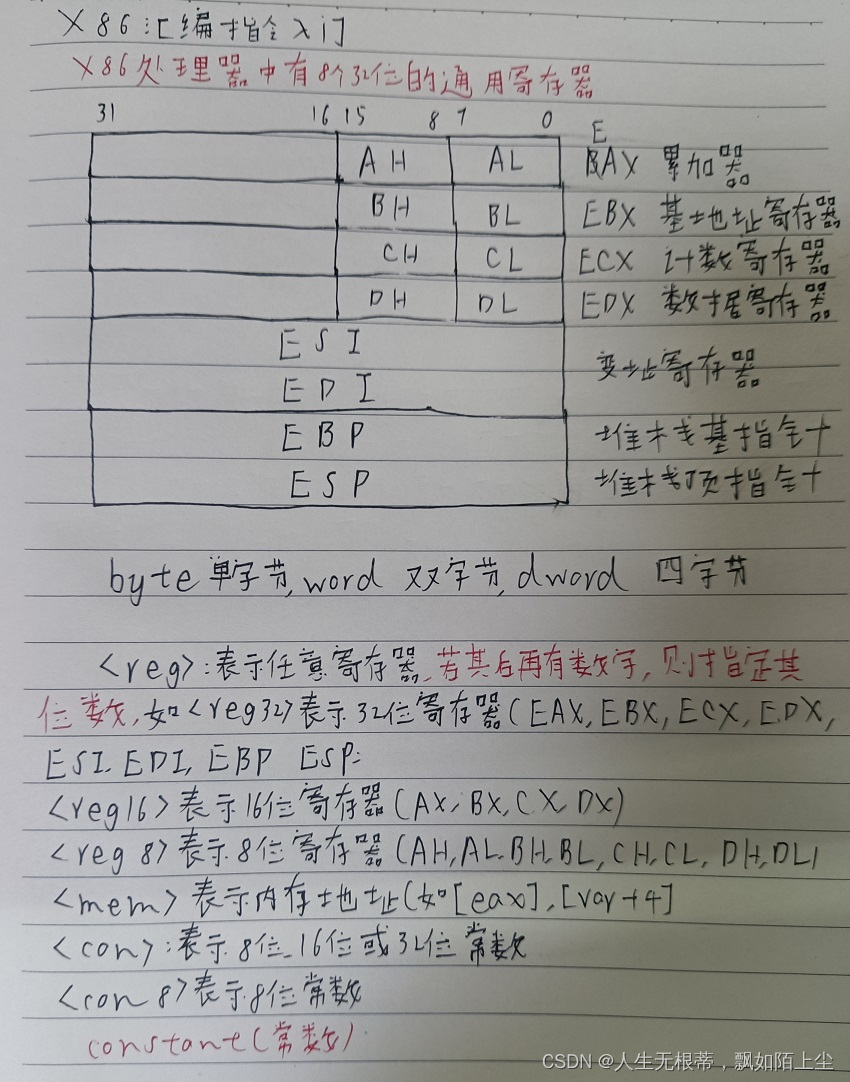 X86汇编指令入门
X86处理器中有8个32位的通用寄存器
31 16 15 8 7 0
AH AL EAX 累加器
BH BL EBX 基地址寄存器
CH CL ECX 计数寄存器
DH DL EDX 数据寄存器
ESI
变址寄存器
EDI
EBP 堆栈基指针
ESP 堆栈顶指针
byte单字节,word 双字节,dword 四字节
<reg>:表示任意寄存器,若其后再有数字,则指定其
位数,如<reg32>表示32位寄存器(EAX,EBX,ECX,EDX,
ESI.EDI,EBP ESP:
<reg16>表示16位寄存器(AX,BX,CX DX)
<reg 8>表示8位寄存器(AH,AL.BH.BL,CH,CL,DH,DL)
<mem>表示内存地址(如[eax],[var+4]
<con>:表示8位 16位或32位常数
<con 8>表示8位常数
constant(常数)
CSDN @人生无根蒂，飘如陌上尘